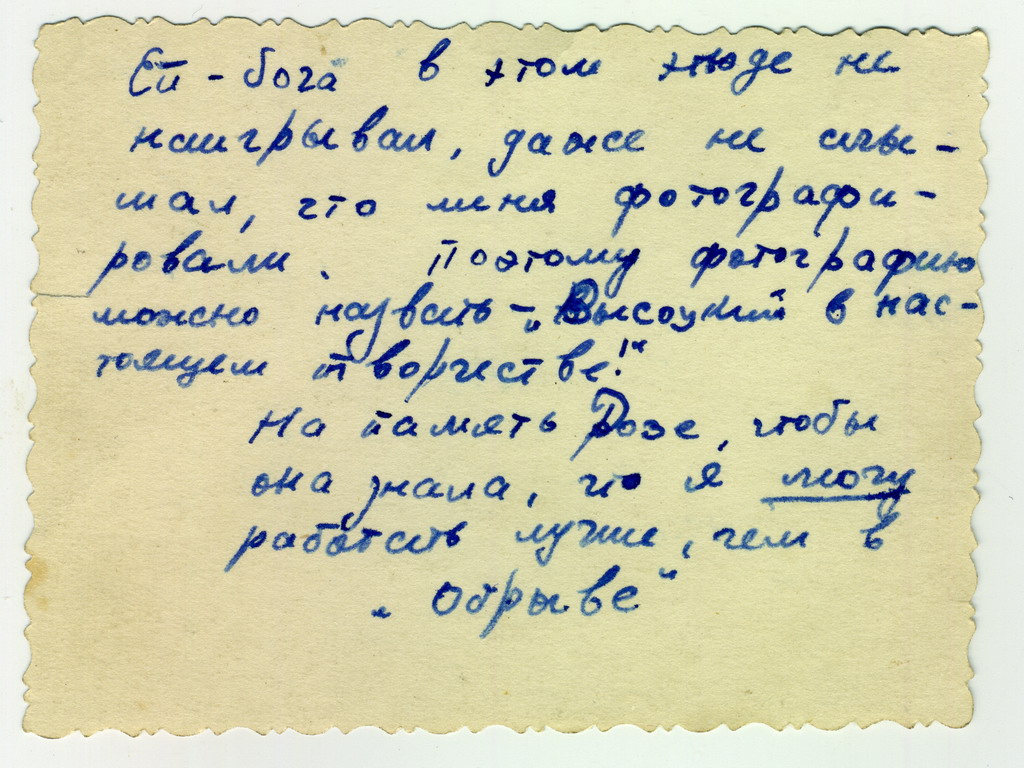 Ей-бога в этом этюде не
наигрывал, даже не слы-
шал, что меня фотографи-
ровали. Поэтому фотографию
можно назвать – „Высоцкий в нас-
тоящем творчестве!“
На память Розе, чтобы
она знала, что я могу
работать лучше, чем в
„Обрыве“